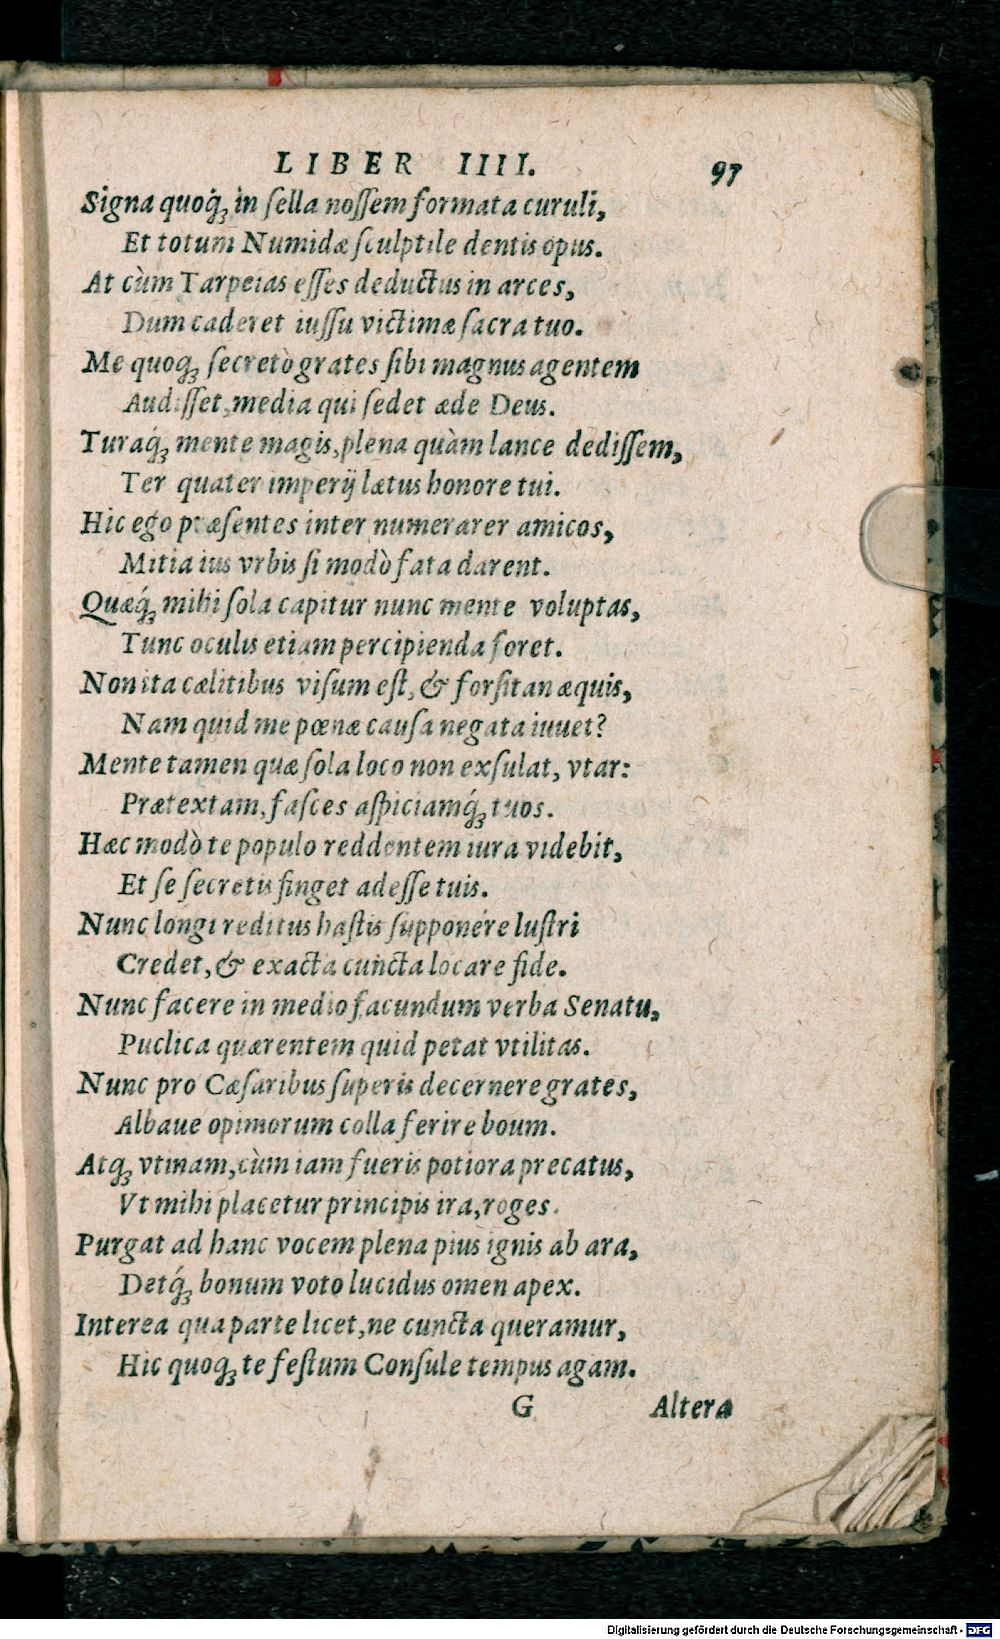 LIBER IIII. 97
Signa quoq́; in ſella noſſem formata curuli,
Et totum Numidæ ſculptile dentis opus.
At cùm Tarpeias eſſes deductus in arces,
Dum caderet iuſſu victimæ ſacra tuo.
Me quoq; ſecretò grates ſibi magnus agentem
Audiſſet, media qui ſedet æde Deus.
Turaq́; mente magis, plena quàm lance dediſſem,
Ter quater imperij lætus honore tui.
Hic ego præſentes inter numerarer amicos,
Mitia ius vrbis ſi modò fata darent.
Quæq́; mihi ſola capitur nunc mente voluptas,
Tunc oculis etiam percipienda foret.
Non ita cælitibus viſum eſt, & forſitan æquis,
Nam quid me pœnæ cauſa negata iuuet?
Mente tamen quæ ſola loco non exſulat, vtar:
Prætextam, faſces aſpiciamq́; tuos.
Hæc modò te populo reddentem iura videbit,
Et ſe ſecretis finget adeſſe tuis.
Nunc longi reditus haſtis ſupponére luſtri
Credet, & exacta cuncta locare fide.
Nunc facere in medio facundum verba Senatu,
Puclica quærentem quid petat vtilitas.
Nunc pro Cæſaribus ſuperis decernere grates,
Albaue opimorum colla ferire boum.
Atq; vtinam, cùm iam fueris potiora precatus,
Vt mihi placetur principis ira, roges.
Purgat ad hanc vocem plena pius ignis ab ara,
Detq́; bonum voto lucidus omen apex.
Interea qua parte licet, ne cuncta queramur,
Hic quoq; te feſtum Conſule tempus agam.
G Altera
Digitalisierung gefördert durch die Deutsche Forschungsgemeinschaft - DFG